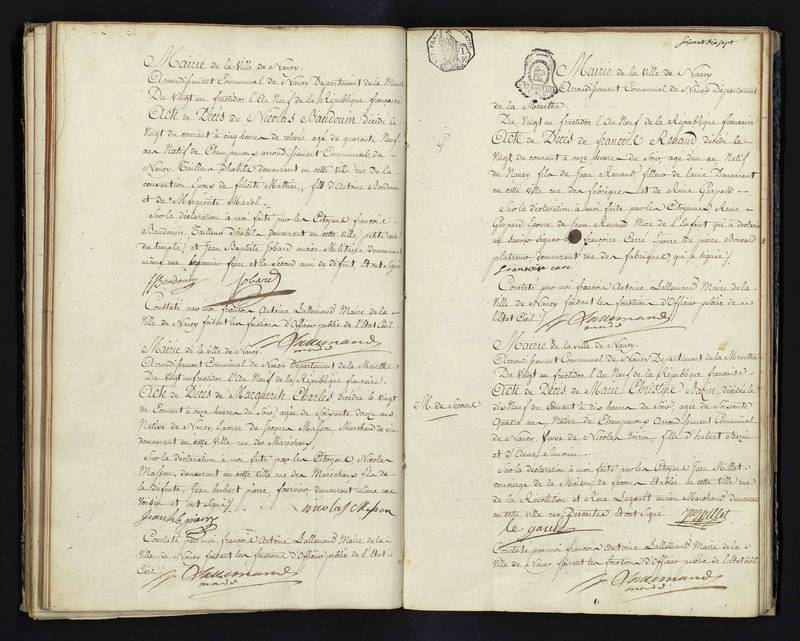 Mairie de la Ville de Nancy
Arrondissement Communal de Nancy Departement de la Meurthe
Du Vingt un fructidor l'An Neuf de la République française
Acte de Décès de Nicolas Baudouin décédé le
Vingt du courant à cinq heures de relevée agé de quarante Neuf
ans Natif de Champenoux arrondissement Communal de
Nancy Tailleur d'habits demeurant en cette ville rue de la
convention, Epoux de félicité Mathieu, fils d'Antoine Baudouin
et de Marguerite
Sur la déclaration à moi faite par les Citoyens françois
Baudouin Tailleur d'habits demeurant en cette ville petite rue
du temple, et Jean Baptiste Jobard ancien Militaire demeurant
même rue le premier frère et le Second ami du défunt, et ont Signé
f Baudouin Jobard
Constaté par moi françois Antoine Lallemand Maire de la
Ville de Nancy faisant les fonctions d'Officier public de l'Etat Civil
Lallemand
Mairie de la ville de Nancy
Arrondissement Communal de Nancy Departement de la Meurthe
Du Vingt un fructidor l'An Neuf de la République francaise
Acte de Décès de Charles décédée le Vingt
du Courant à onze heures du Soir, agée de Soixante douze ans
Native de Nancy Epouse de Jacques Masson Marchand de vin
demeurant en cette Ville rue des Maréchaux
Sur la déclaration à moi faite par les Citoyens Nicolas
Masson demeurant en cette ville rue des Maréchaux fils de
la défunte, Jean hubert pierre, fournier demeurant même rue
Voisin et ont Signé
Jean hb pierre Nicolas Masson
Constaté par moi françois Antoine Lallemand Maire de la
Ville de Nancy faisant les fonctions d'Officier public de l'Etat
Civil
Lallemand
Soixante dix sept
Mairie de la Ville de Nancy
Arrondissement Communal de Nancy Département
de la Meurthe
Du Vingt un fructidor l'An Neuf de la République française
Acte de Décès de françois Renaud décédé le
Vingt du courant à onze heures du Soir agé d'un an Natif
de Nancy fils de Jean Renaud demeurant
en cette ville rue des fabriques et de Reine Gaspard
Sur la déclaration à moi faite par les Citoyennes Reine
Gaspard Epouse de Jean Renaud Mere de l'Enfant qui a déclaré
ne Savoir Signer françoise Carré Epouse de pierre
platreur, demeurant rue de fabriques, qui a Signé
françoise caré
Constaté par moi françois Antoine Lallemand Maire de la
Ville de Nancy faisant les fonctions d'Officier public de
l'Etat Civil
Lallemand
Mairie de la ville de Nancy
Arrondissement Communal de Nancy Departement de la Meurthe
Du Vingt un fructidor l'An Neuf de la République française
Acte de Décès de Marie Christine Bazin, décédée le
dix Neuf du Courant à dix heures du Soir, agée de Soixante
quatre ans Native de Champenoux Arrondissement Communal
de Nancy, Veuve de Nicolas fille d'hubert Bazin
et d'Anne
M. de Secours
Sur la déclaration à moi faite par les Citoyens Jean Millot
concierge de la Maison de Secours établie en cette Ville rue
de la Révolution et René Legault ancien Marchand demeurant
en cette ville rue Descartes et ont Signé
le gault
Constaté par moi françois Antoine Lallemand Maire de la
Ville de Nancy faisant les fonctions d'Officier public de l'état civil
Lallemand